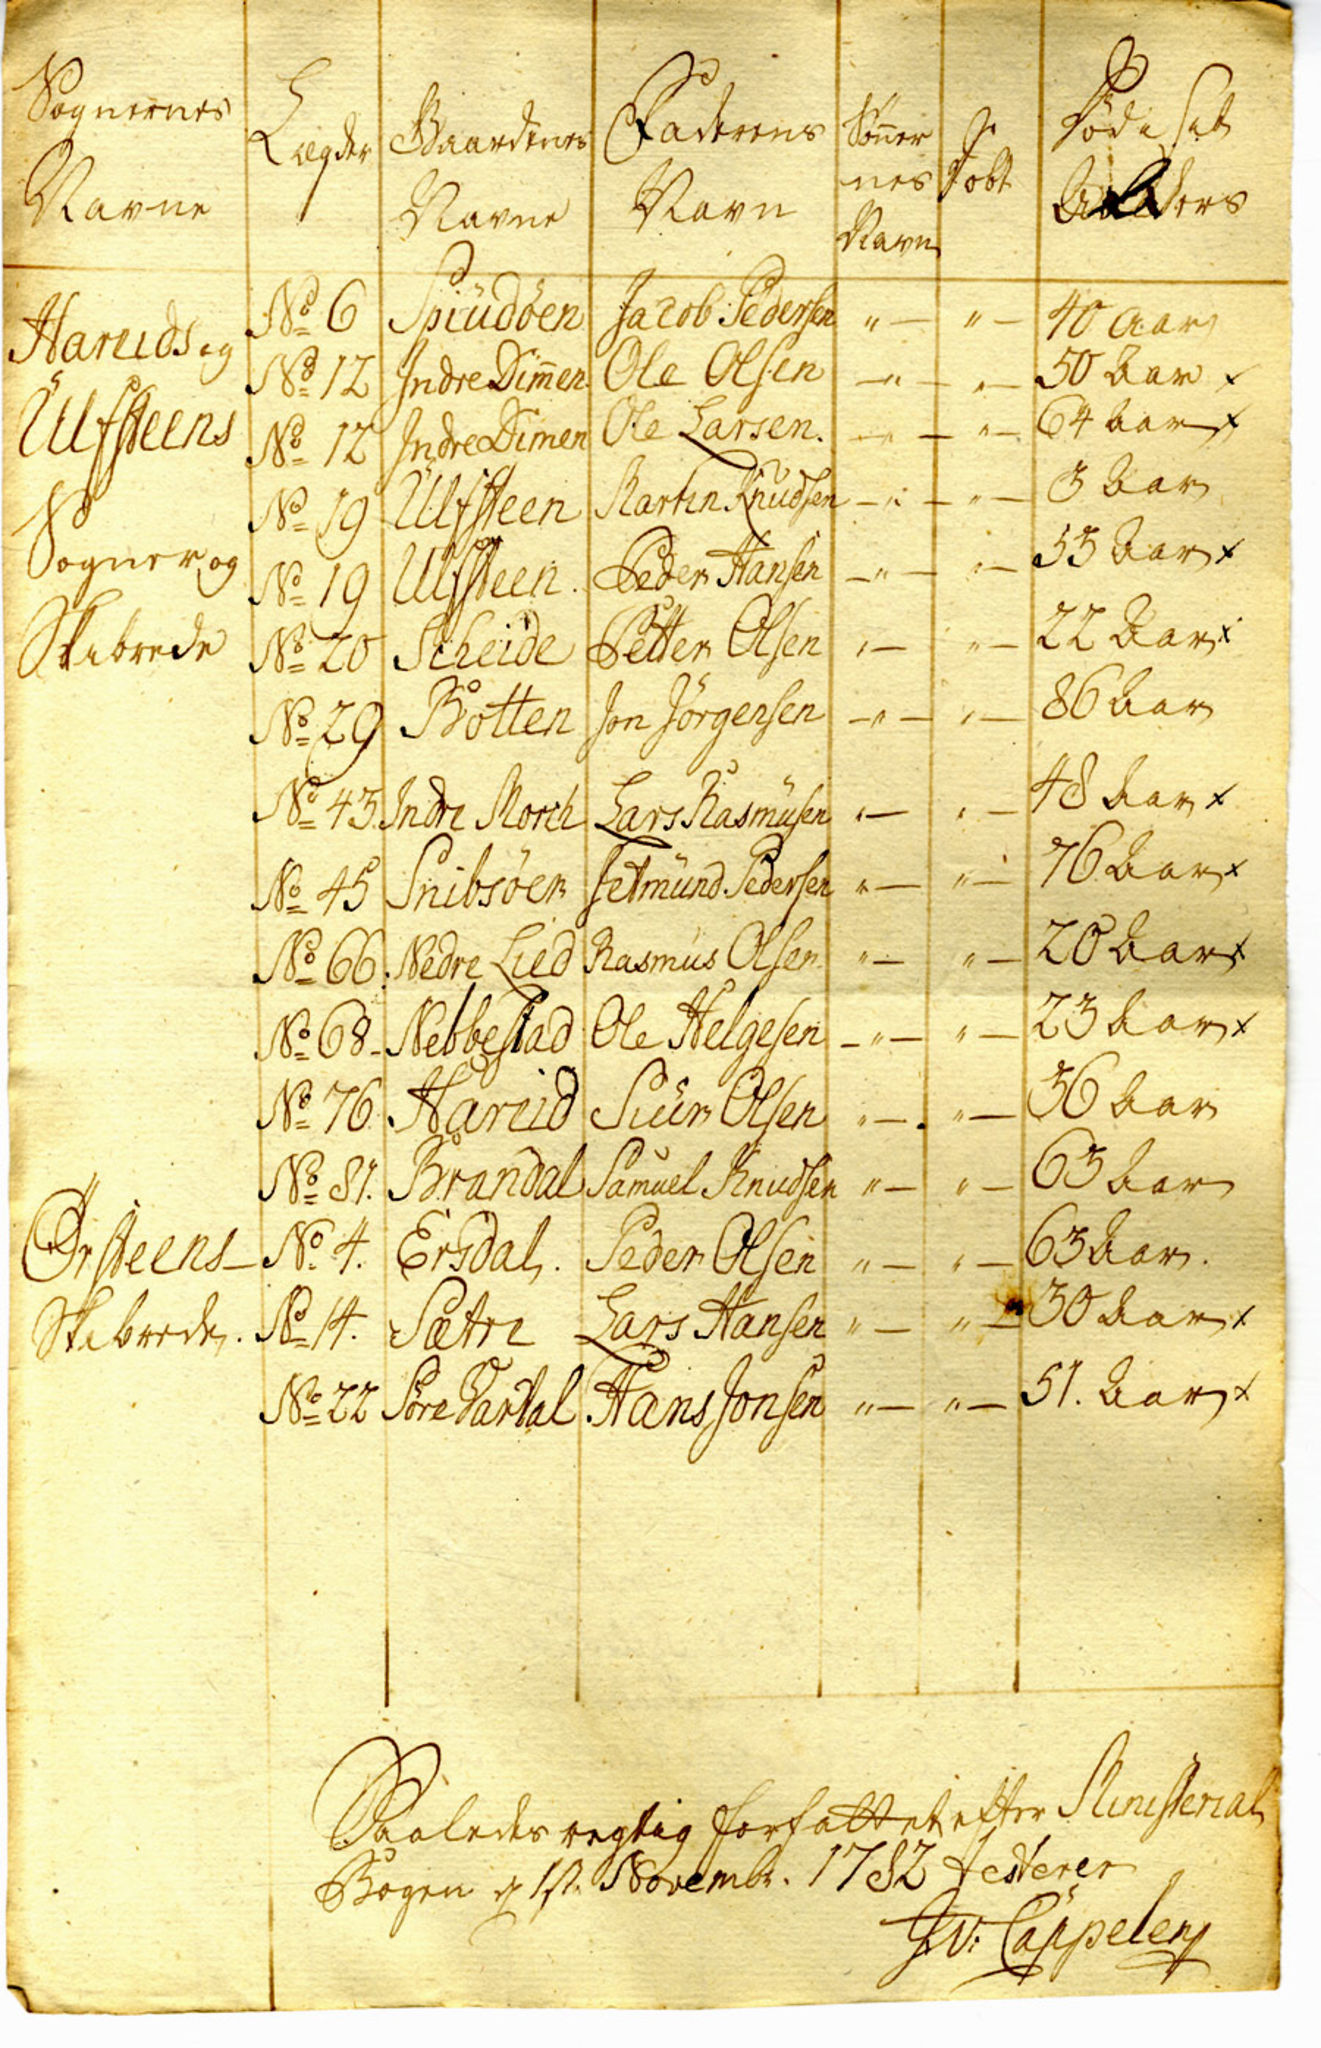 Sognernes Navne | Lægder | Gaardenes Navne | Faderens Navn | Sønnernes Navn | Føbt | Døde Alders
Hareids og | No 6 | Spiudöen | Jacob Pedersen | " — | " — | 40 aar
No 12 | Indre Dim̄en | Ole Olsen | — " — | " — | 50 Aar x
Ülfsteens | No 12 | Indre Dimen | Ole Larsen. | — " — | " — | 64 aar x
No 19 | Ülfsteen | Martin Knudsen | — " — | " — | 3 Aar
Sogner og | No 19 | Ülfsteen. | Peder Hansen | — " — | " — | 55 Aar x
Skibrede | No 20 | Scheide | Petter Olsen | " — | " — | 22 Aar x
No 29 | Botten | Jon Jörgensen | — " — | " — | 86 Aar
No 43 | Indre Morch | Lars Rasmüsen | " — | " — | 48 Aar x
No 45 | Snibsöer | Setmünd Pedersen | " — | " — | 76 Aar x
No 66. | Nedre Lied | Rasmus Olsen | " — | " — | 20 Aar x
No 68 - | Nebbestad | Ole Helgesen | — " — | " — | 23 Aar x
No 76 | Hareid | Siür Olsen | " — . | " — | 56 Aar
No 81. | Brandal | Samuel Knudsen | " — | " — | 63 Aar
Örsteens — | No 4. | Ersdal. | Peder Olsen | " — | " — | 63 Aar.
Skibrede. | No 14. | Sætre | Lars Hansen | " — | " — | 30 Aar x
No 22 | Söre Vartal | Hans Jonsen | " — | " — | 51. Aar x
Saaledes regtig forfattet efter Ministerial
Bogen d 1st. Novembr. 1782 testerer
J. v: Cappelen